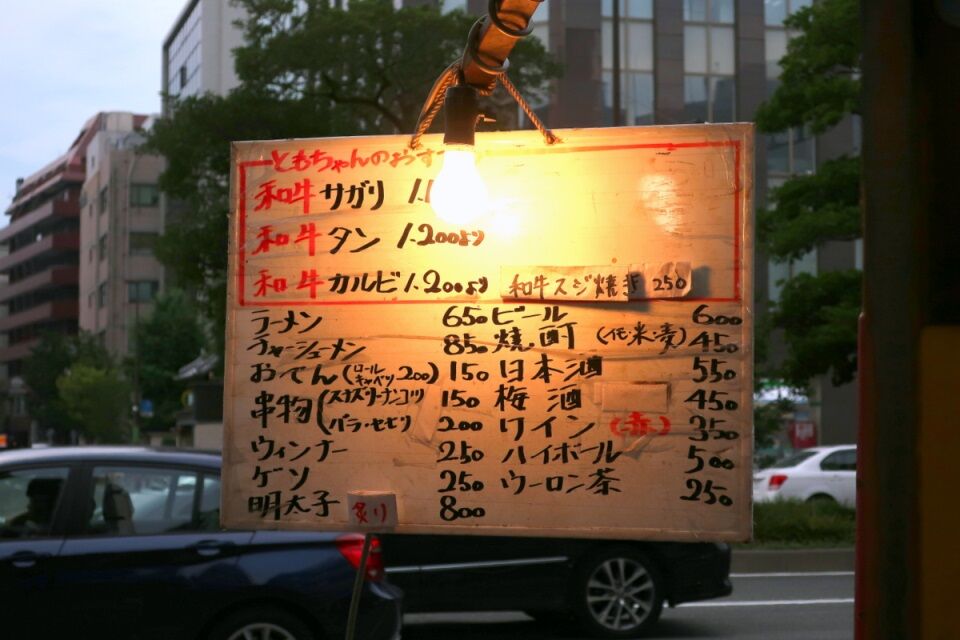 ともちゃんのおすす
和牛 サガリ 1.
和牛 タン 1.200より
和牛 カルビ 1.200より
和牛スジ焼き 250
ラーメン 650
チャーシューメン 850
おでん(ロールキャベツ 200) 150
串物(スナズリ・ナンコツ 150
バラ・セセリ 200
ウィンナー 250
ゲソ 250
明太子 炙り 800
ビール 600
焼酎 (芋・米・麦) 450
日本酒 550
梅酒 450
ワイン (赤) 350
ハイボール 500
ウーロン茶 250